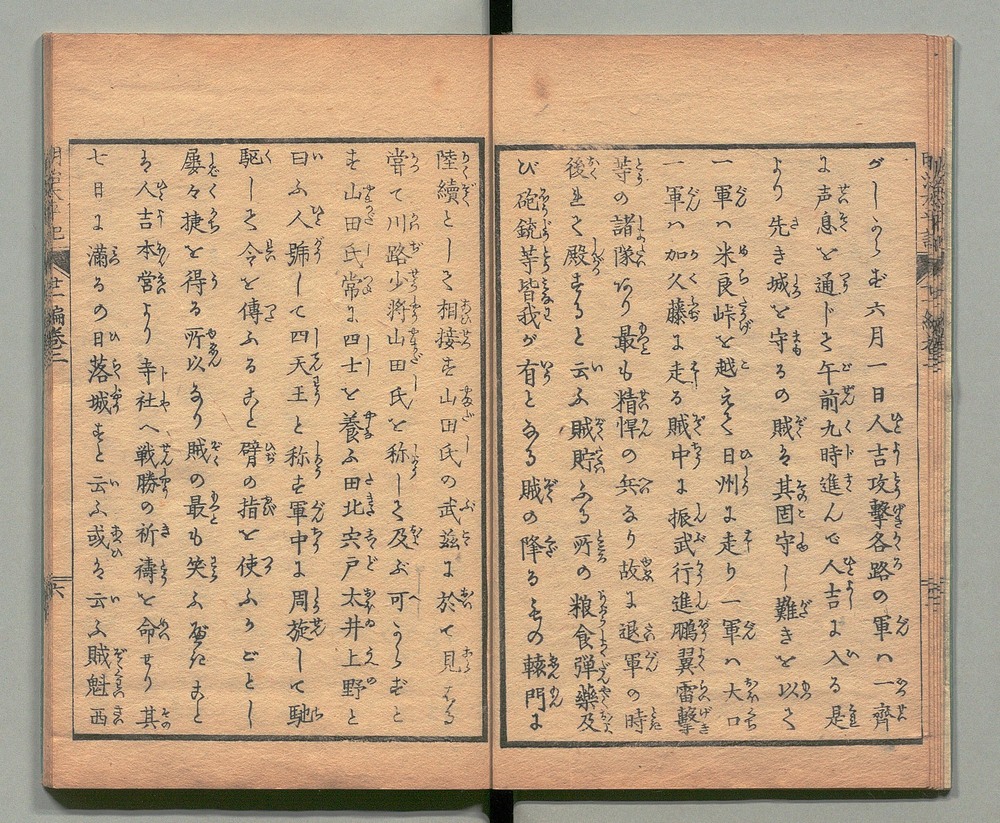 ゲしからず六月一日人吉攻撃各路の軍ハ一齊
に声息を通じて午前九時進んで人吉に入る是
より先き城を守るの賊は其固守し難きを以て
一軍ハ米良峠を越えて日州に走り一軍ハ大口
一軍ハ加久藤に走る賊中に振武行進鵬翼雷撃
等の諸隊あり最も精悍の兵なり故に退軍の時
後れて殿すると云ふ賊貯ふる所の粮食弾藥及
び砲銃等皆我が有となる賊の降るもの轅門に
陸續として相接す山田氏の武茲に於て見はる
嘗て川路少将山田氏を称して及ぶ可からずと
す山田氏常に四士を養ふ田北宍戸太井上野と
曰ふ人號して四天王と称す軍中に周旋して馳
駆して令を傳ふること臂の指を使ふがごとし
屡々捷を得る所以なり賊の最も笑ふ可きこと
は人吉本営より寺社へ戦勝の祈禱を命せり其
七日に満るの日落城すと云ふ或は云ふ賊魁西
廿一編巻二
六